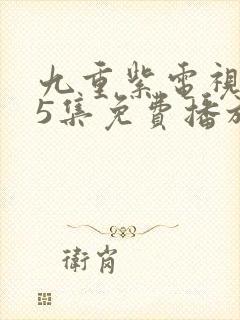 九重紫電視
5集免費播放
衛肖